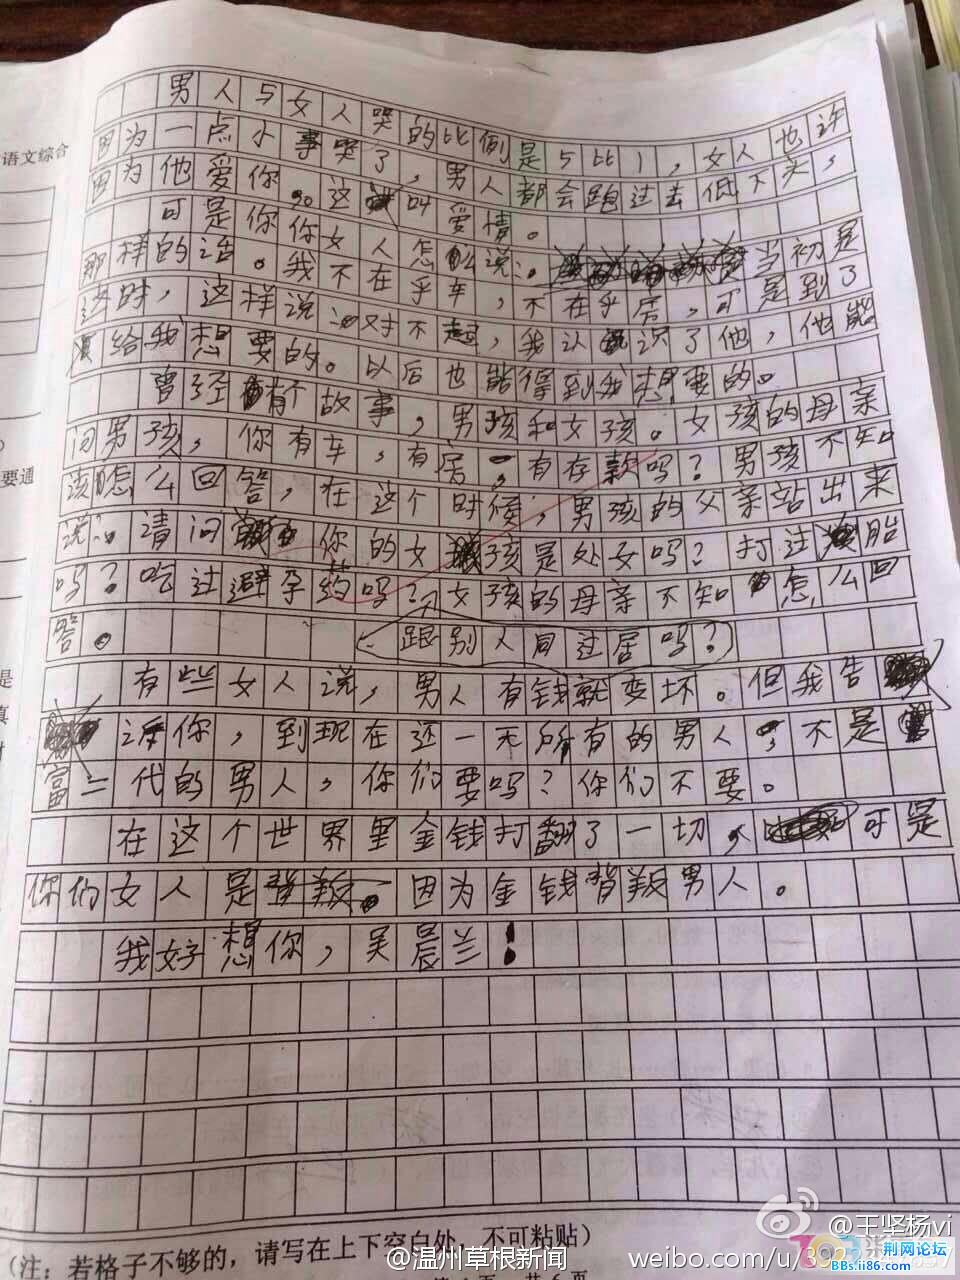 男人与女人哭的比例是5比1，女人也许
因为一点小事哭了，男人都会跑过去低下头，
因为他爱你。这叫爱情。
可是你你女人怎么说：。当初是
那样的话。我不在乎车，不在乎居，可是到了
这时，这样说：对不起，我认识了他，他能
给我想要的。以后也能得到我想要的。
曾经有个故事，男孩和女孩。女孩的母亲
问男孩，你有车，有居，有存款吗？男孩不知
该怎么回答，在这个时候，男孩的父亲站出来
说：请问你的女孩是处女吗？打过胎
吗？吃过避孕药吗？女孩的母亲不知怎么回
答。
跟别人同过居吗？
有些女人说，男人有钱就变坏。但我告
你，到现在还一无所有的男人，不是
富二代的男人，你们要吗？你们不要。
在这个世界里金钱打翻了一切，可是
你们女人是背叛。因为金钱背叛男人。
我好想你，吴晨兰！
语文综合
要通
是
真
(注：若格子不够的，请写在上下空白处，不可粘贴)
共6页
@温州草根新闻
@王坚杨vi
weibo.com/u/30
荆网论坛
BBs.ii86.com